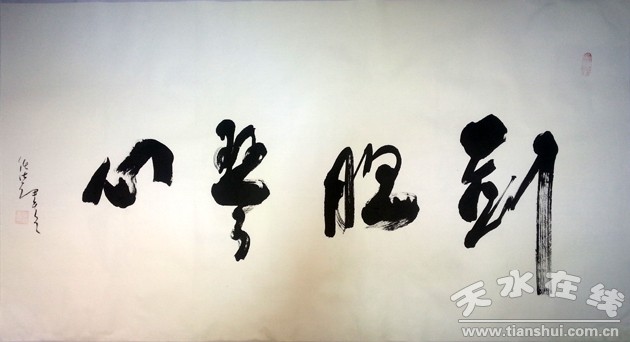 剑胆琴心
天水在线
www.tianshui.com.cn